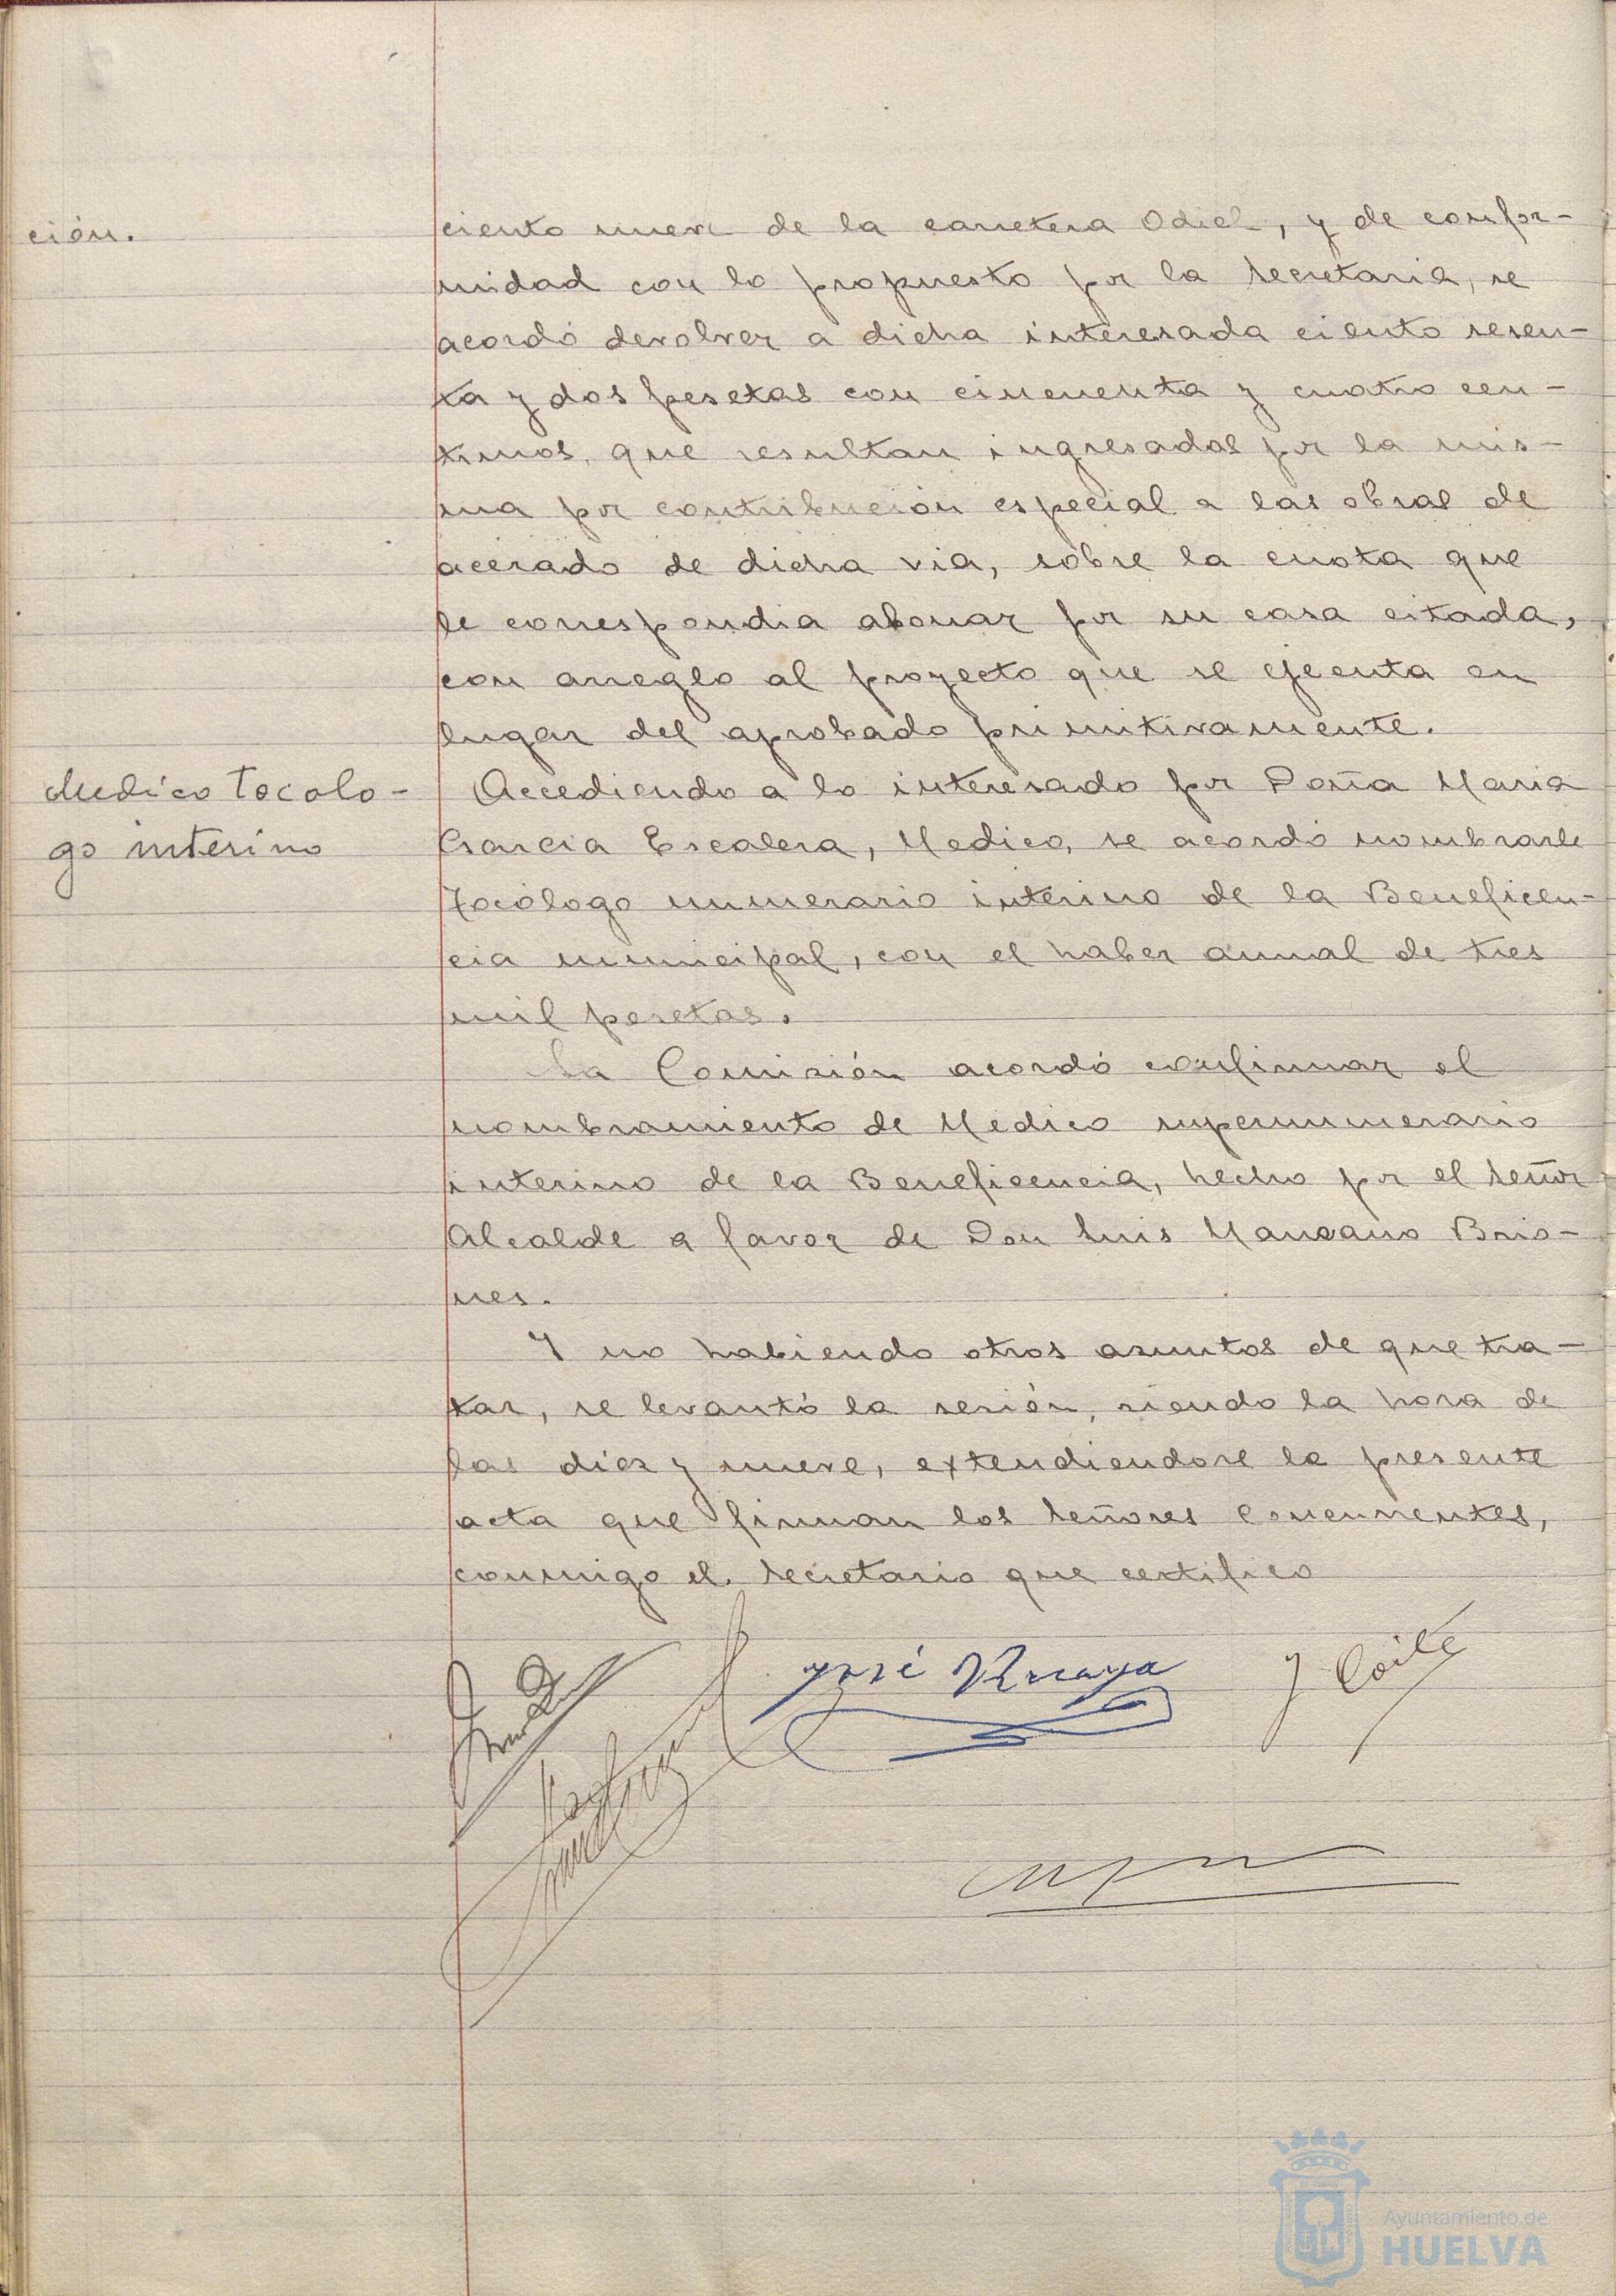 ción.
ciento nueve de la carretera Odiel, y de confor-
midad con lo propuesto por la Secretaria, se
acordó devolver a dicha interesada ciento sesen-
ta y dos pesetas con cincuenta y cuatro cen-
timos, que resultan ingresadas por la mis-
ma por contribución especial a las obras de
acerado de dicha via, sobre la cuota que
le correspondia abonar por su casa citada,
con arreglo al proyecto que se ejecuta en
lugar del aprobado primitivamente.
Medico Tocolo-
go interino
Accediendo a lo interesado por Doña Maria
Garcia Escalera, Medico, se acordó nombrarle
Tocólogo numerario interino de la Beneficen-
cia municipal, con el haber annal de tres
mil pesetas.
La Comisión acordó confirmar el
nombramiento de Medico supernumerario
interino de la Beneficencia, hecho por el Señor
Alcalde a favor de Don Luis Manzano Brio-
nes.
Y no habiendo otros asuntos de que tra-
tar, se levantó la sesión, siendo la hora de
las diez y nueve, extendiendose la presente
acta que firman los Señores Concurrentes,
conmigo el Secretario que certifico
José
J
Ayuntamiento de
HUELVA